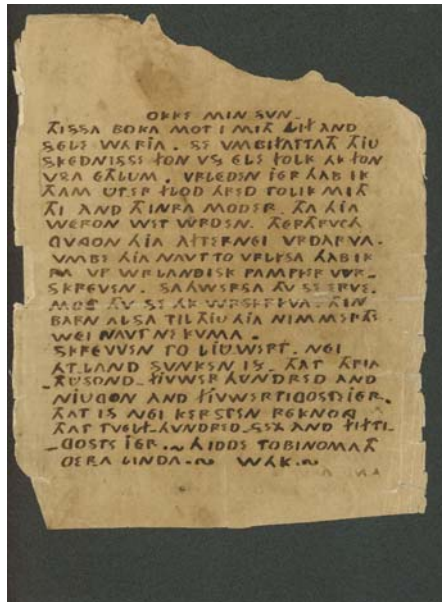 OKKE MIN SVN.
THISSA BOKA MOT I MITH LIF AND
SELE WARIA. SE VMBIFATTATH THIU
SKEDNISSE FON VS ELE FOLK AK FON
VSA ETHLUM. VRLEDEN IER HAB IK
THAM UTER FLOD HRED TOLIK MITH
THI AND THINRA MODER. THA HIA
WERON WET WRDEN. THERTHRVCH
GVNGON HIA AFTERNEI VRDARVA.
VMBE HIA NAVT TO VRLYSA HAB IK
RA VP WRLANDISK PAMPYER WR-
SKREVEN. SAHWERSA THU SE ERVE.
MOT THU SE AK WRSKRYVA. THIN
BARN ALSA TIL THIU HIA NIMMERTHE
WEI NAVT NE KVMA.
SKREVEN TO LIUWERT. NEI
ATLAND SUNKEN IS. THAT THRIA
THUSOND. FIUWER HUNDRED AND
NIUGON AND FIUWERTIGOSTE IER.
THAT IS NEI KERSTEN REKNONG
THAT TVELF-HUNDRED SEX AND FIFTI-
GOSTE IER. ~ HIDDE TOBINOMATH
OERA LINDA. ~ WAK. ~